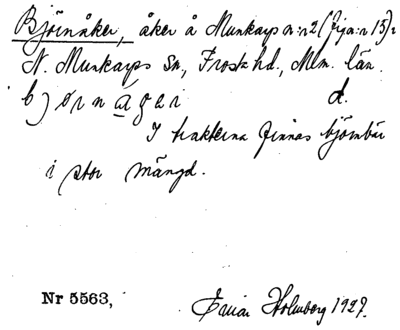 Björnåker, åker å Munkarp n:r 2 (fig a:r 15) i
N. Munkarps Sn, Frosta hd., Mlm. län.
b) ø r n å g e r d.
I trakterna finnas björnbär
i stor mängd.
Nr 5563, Einar Holmberg 1927.